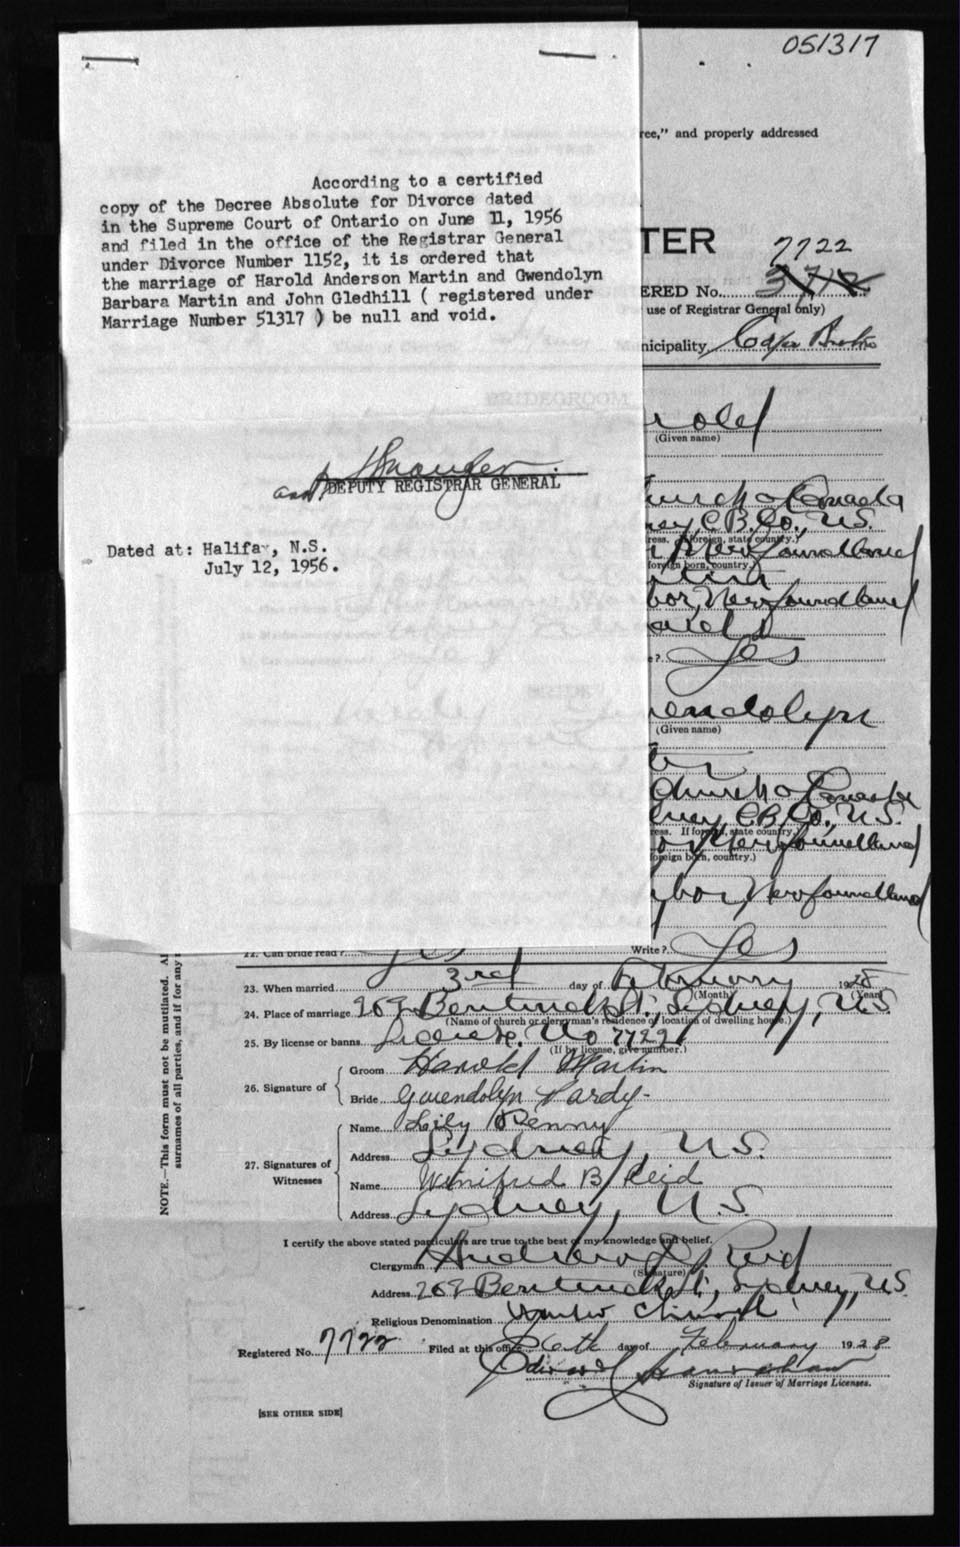 051317
ree," and properly addressed
According to a certified
copy of the Decree Absolute for Divorce dated
in the Supreme Court of Ontario on June 11, 1956
and filed in the office of the Registrar General
under Divorce Number 1152, it is ordered that
the marriage of Harold Anderson Martin and Gwendolyn
Barbara Martin and John Gledhill ( registered under
Marriage Number 51317 ) be null and void.
DEPUTY REGISTRAR GENERAL
Dated at: Halifax, N.S.
July 12, 1956.
TER
7722
ERED No.
use of Registrar General only)
nicipality Cape Breton
rold
(Given name)
hurch of Canada
ney C.B.Co., N.S.
ress. If foreign, state country.)
r, Newfoundland
foreign born, country.)
artin
bor, Newfoundland
ard
e? Yes
endolyn
(Given name)
Church of Canada
dney, C.B.Co., N.S.
ress. If foreign, state country.)
or, Newfoundland
foreign born, country.)
rbor, Newfoundland
22. Can bride read? Yes Write? Yes
23. When married 3rd day of February 1928
(Month) (Year)
24. Place of marriage 269 Bentinck St., Sydney, N.S.
(Name of church or clergyman's residence or location of dwelling house.)
25. By license or banns License. No 7722
(If by license, give number.)
26. Signature of
Groom Harold Martin
Bride Gwendolyn Pardy
27. Signatures of Witnesses
Name Lily Penny
Address Sydney, N.S.
Name Winifred B. Reid
Address Sydney, N.S.
I certify the above stated particulars are true to the best of my knowledge and belief.
Clergyman Reid
(Signature)
Address 269 Bentinck St., Sydney, N.S.
Religious Denomination United Church
Registered No. 7722 Filed at this office 6th day of February 1928
Signature of Issuer of Marriage Licenses.
[SEE OTHER SIDE]
NOTE.—This form must not be mutilated. Al
surnames of all parties, and if for any